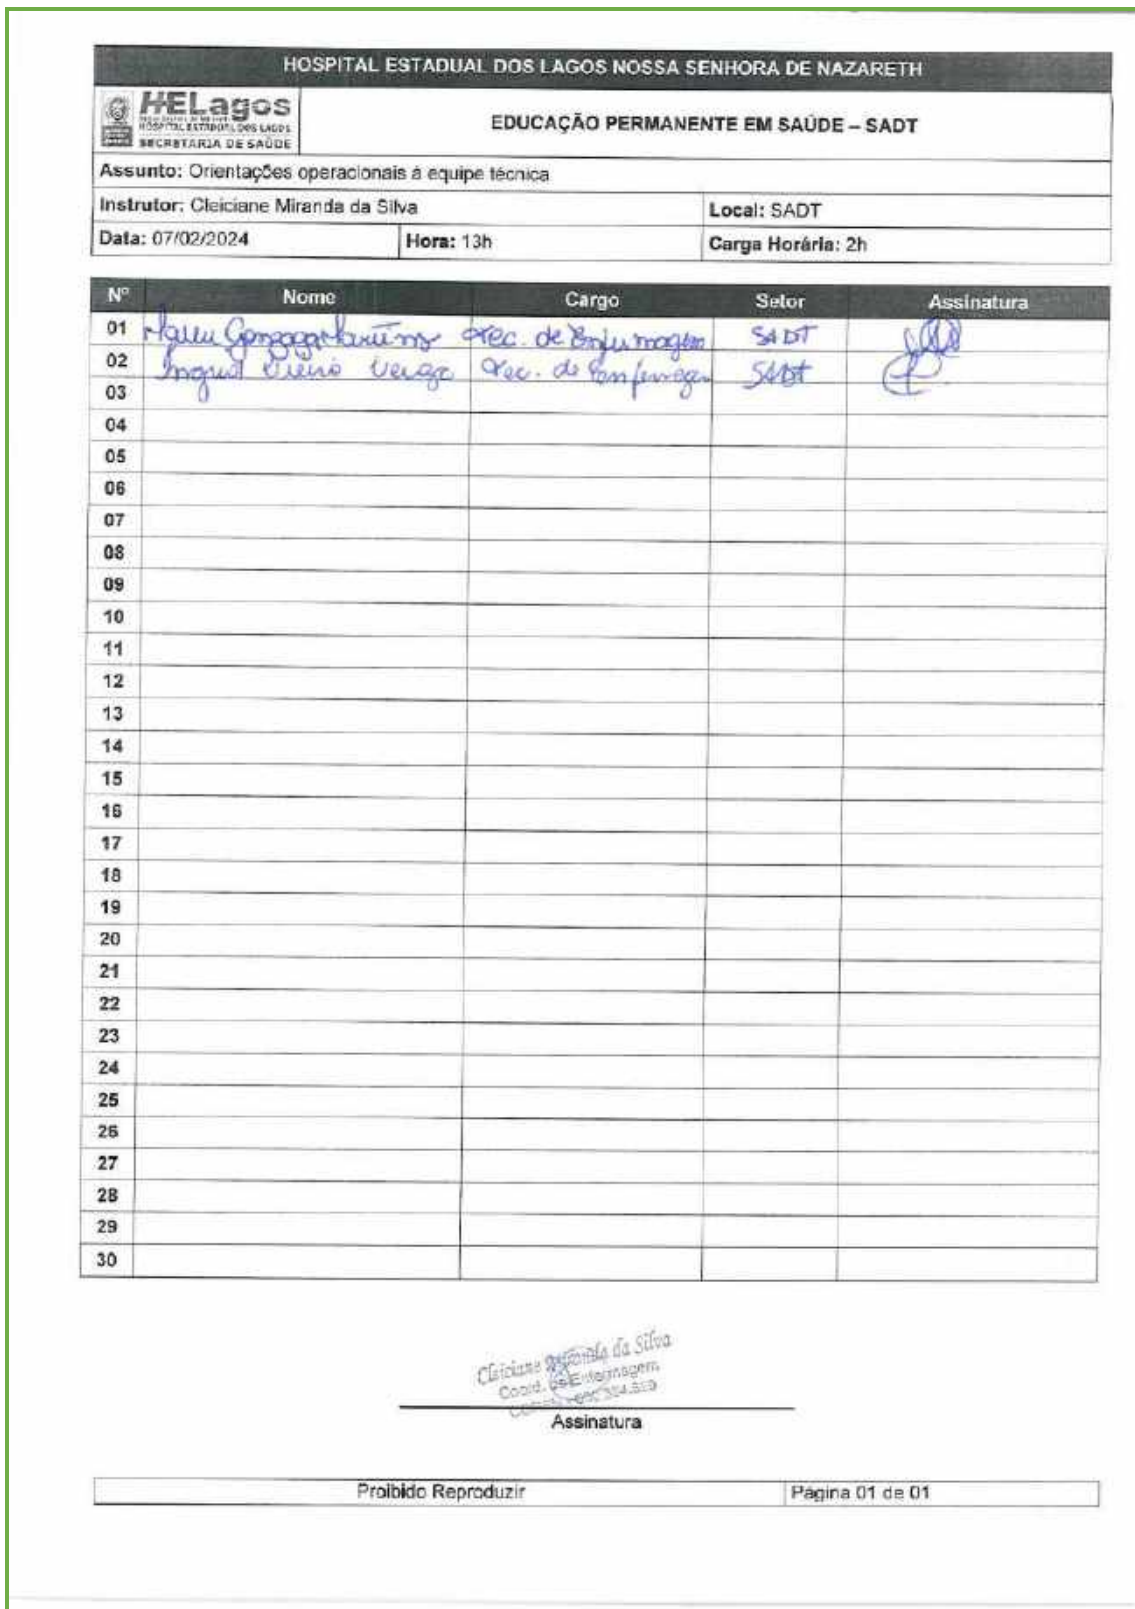 HOSPITAL ESTADUAL DOS LAGOS NOSSA SENHORA DE NAZARETH
HELagos
HOSPITAL ESTADUAL DOS LAGOS
SECRETARIA DE SAÚDE
EDUCAÇÃO PERMANENTE EM SAÚDE – SADT
Assunto: Orientações operacionais á equipe técnica
Instrutor: Cleiciane Miranda da Silva Local: SADT
Data: 07/02/2024 Hora: 13h Carga Horária: 2h
Nº Nome Cargo Setor Assinatura
01 Martins Tec. de Enfermagem SADT
02 Tec. de Enfermagem SADT
03
04
05
06
07
08
09
10
11
12
13
14
15
16
17
18
19
20
21
22
23
24
25
26
27
28
29
30
Cleiciane Miranda da Silva
Coord. de Enfermagem
Assinatura
Proibido Reproduzir Página 01 de 01